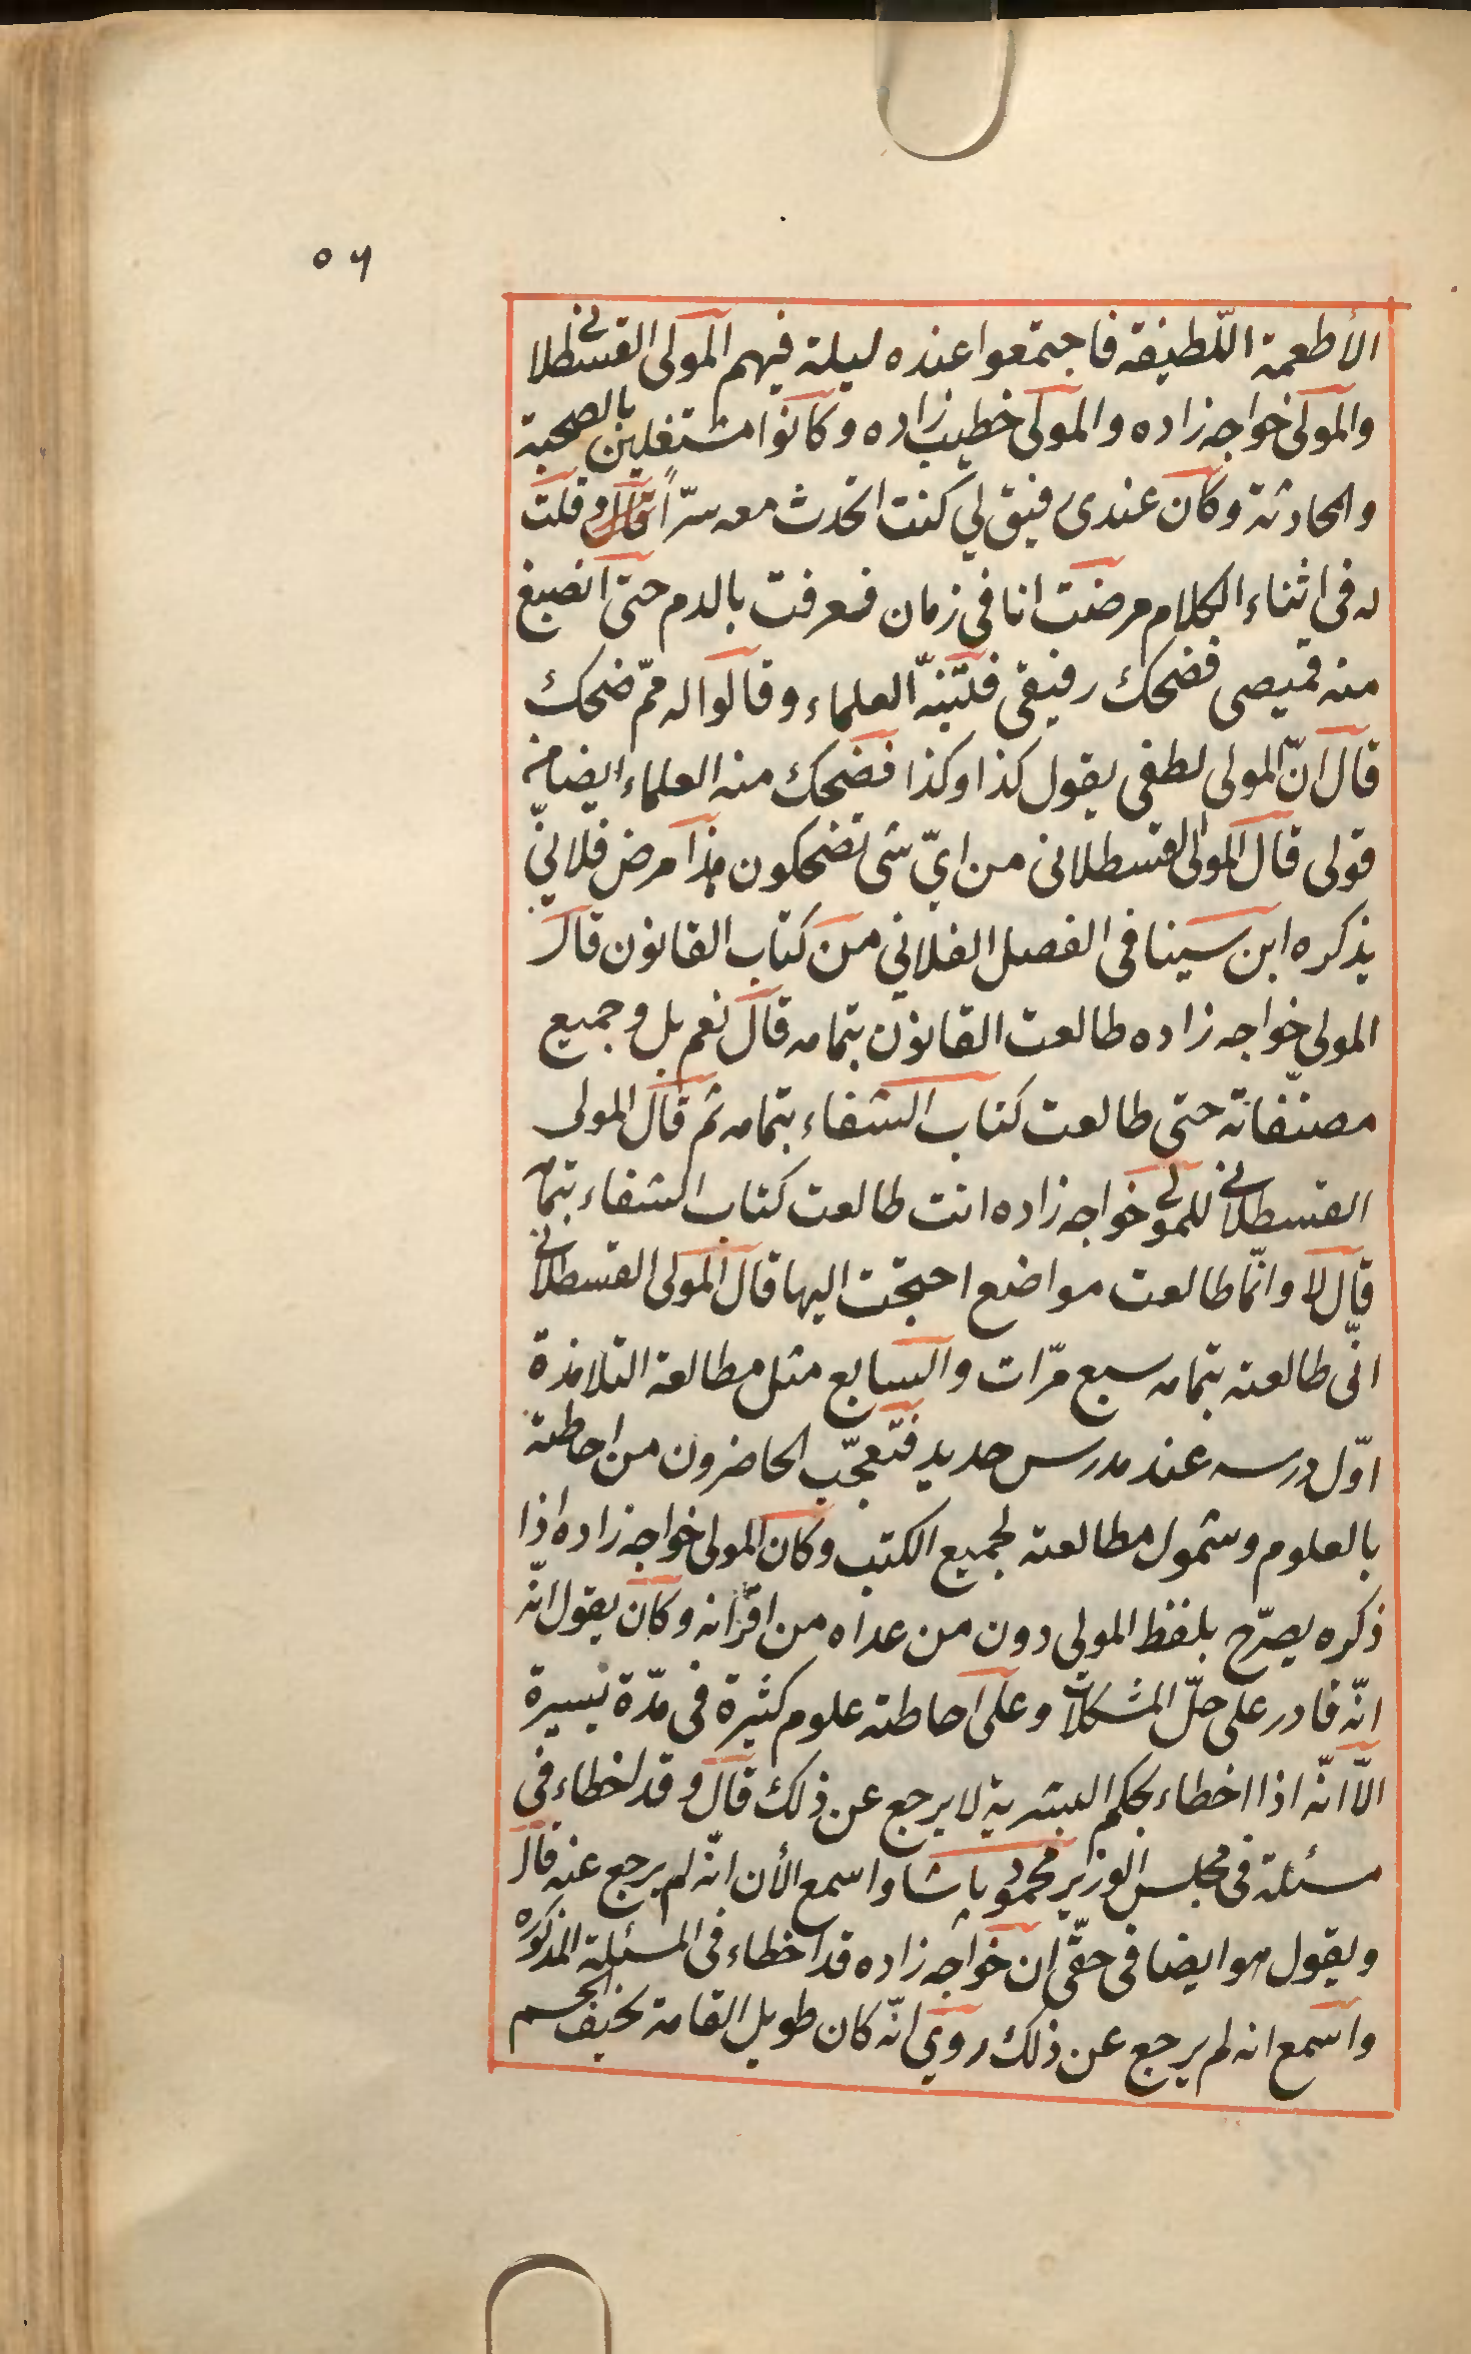 ٥٦
الأطعمة اللّطيفه فاجتمعوا عنده ليلة فيهم المولى القسطلانى
والمولى خواجه زاده والمولى خطيب زاده وكانوا مشتغلين بالصحبة
والمحادثة وكان عندى رفيق لي كنت اتحدث معه سرّاً قال وقلت
له فى اثناء الكلام مرضت انا فى زمان فعرقت بالدم حتى انصبغ
منه قميصى فضحك رفيقى فتنبّه العلماء وقالوا له ممّ ضحك
قال انّ المولى لطفى يقول كذا وكذا فضحك منه العلماء ايضا من
قولى قال المولى القسطلانى من ايّ شى تضحكون هذا مرض فلانيّ
يذكره ابن سينا فى الفصل الفلاني من كتاب القانون قال
المولى خواجه زاده طالعت القانون بتمامه قال نعم بل وجميع
مصنّفاته حتى طالعت كتاب الشفاء بتمامه ثم قال المولى
القسطلانى للمولى خواجه زاده انت طالعت كتاب الشفاء بتمامه
قال لا وانّما طالعت مواضع احتجت اليها قال المولى القسطلانى
انّى طالعته بتمامه سبع مرّات والسابع مثل مطالعة التلامذة
اوّل درسه عند مدرس جديد فتعجّب الحاضرون من احاطته
بالعلوم وشمول مطالعته لجميع الكتب وكان المولى خواجه زاده اذا
ذكره يصرّح بلفظ المولى دون من عداه من اقرانه وكان يقول انّه
انّه قادر على حلّ المشكلات وعلى احاطته علوم كثيرة فى مدّة يسيرة
الّا انّه اذا اخطاء بحكم البشرية لا يرجع عن ذلك قال وقد اخطاء فى
مسئلة فى مجلس الوزير محمود پاشا واسمع الأن انّه لم يرجع عنه قال
ويقول هو ايضا فى حقّى ان خواجه زاده قد اخطاء فى المسئلة المذكوره
واسمع انه لم يرجع عن ذلك روي انّه كان طويل القامة نحيف الجسم